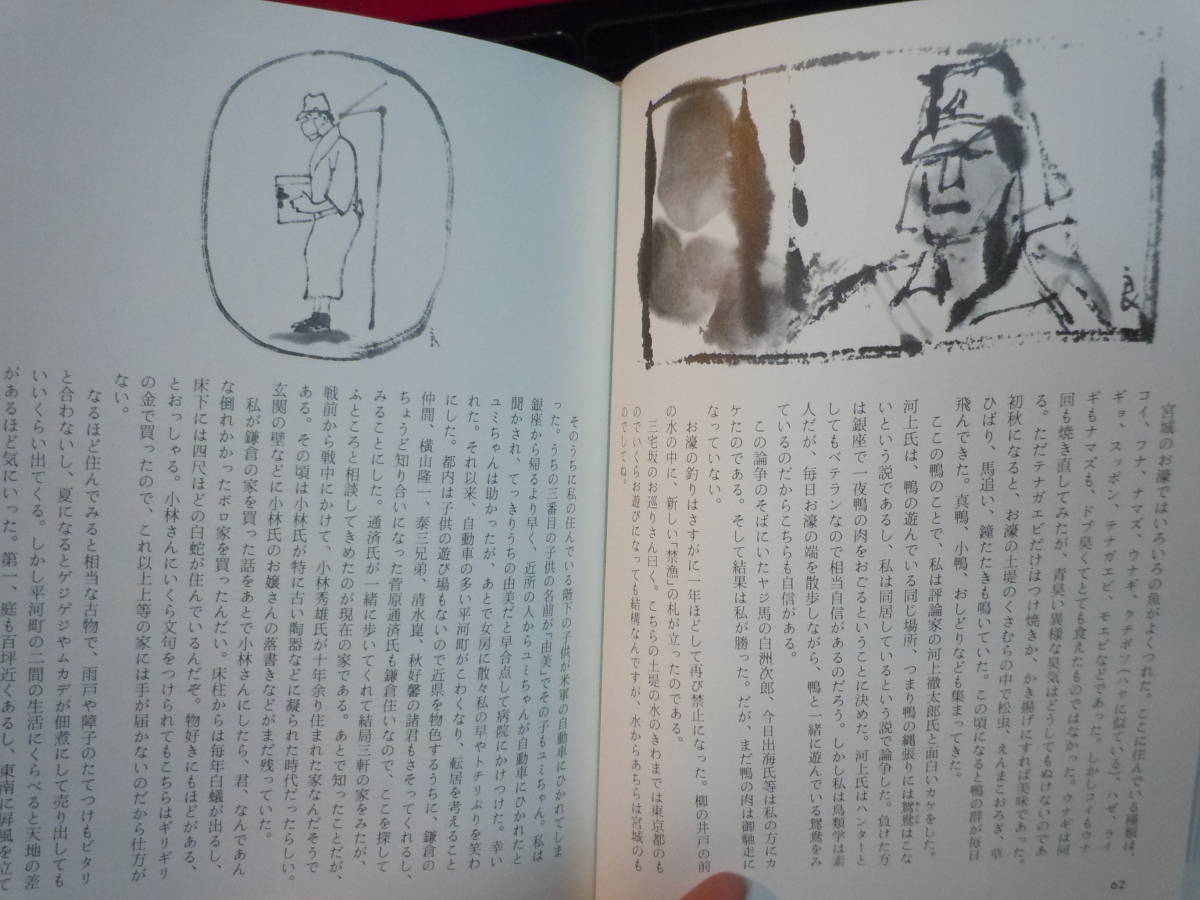 宮城のお濠ではいろいろの魚がよくつれた。ここに住んでいる種類は、
コイ、フナ、ナマズ、ウナギ、クチボソ（ハヤに似ている）、ハゼ、ライ
ギョ、スッポン、テナガエビ、モエビなどであった。しかしコイもウナ
ギもナマズも、ドブ臭くてとても食えたものではなかった。ウナギは何
回も焼き直してみたが、青臭い異様な臭気はどうしてもぬけないのであ
る。ただテナガエビだけはつけ焼きか、かき揚げにすれば美味であった。
初秋になると、お濠の土堤のくさむらの中で松虫、えんまこおろぎ、草
ひばり、馬追い、鐘たたきも鳴いていた。この頃になると鴨の群が毎日
飛んできた。真鴨、小鴨、おしどりなども集まってきた。
ここの鴨のことで、私は評論家の河上徹太郎氏と面白いカケをした。
河上氏は、鴨の遊んでいる同じ場所、つまり鴨の縄張りには鴛鴦はこな
いという説であるし、私は同居しているという説で論争した。負けた方
は銀座で一夜鴨の肉をおごるということに決めた。河上氏はハンターと
してもベテランなので相当自信があるのだろう。しかし私は鳥類学は素
人だが、毎日お濠の端を散歩しながら、鴨と一緒に遊んでいる鴛鴦をみ
ているのだからこちらも自信がある。
この論争のそばにいたヤジ馬の白洲次郎、今日出海氏等は私の方にカ
ケたのである。そして結果は私が勝った。だが、まだ鴨の肉は御馳走に
なっていない。
お濠の釣りはさすがに一年ほどして再び禁止になった。柳の井戸の前
の水の中に、新しい「禁漁」の札が立ったのである。
三宅坂のお巡りさん曰く。こちらの土堤の水のきわまでは東京都のも
のでいくらお遊びになっても結構なんですが、水からあちらは宮城のも
のでしてね。
62
そのうちに私の住んでいる階下の子供が米軍の自動車にひかれてしま
った。うちの三番目の子供の名前が「由美」でその子もユミちゃん。私は
銀座から帰るより早く、近所の人からユミちゃんが自動車にひかれたと
聞かされ、てっきりうちの由美だと早合点して病院にかけつけた。幸い
ユミちゃんは助かったが、あとで女房に散々私の早やトチリぶりを笑わ
れた。それ以来、自動車の多い平河町がこわくなり、転居を考えること
にした。都内は子供の遊び場もないので近県を物色するうちに、鎌倉の
仲間、横山隆一、泰三兄弟、清水崑、秋好馨の諸君もさそってくれるし、
ちょうど知り合いになった菅原通済氏も鎌倉住いなので、ここを探して
みることにした。通済氏が一緒に歩いてくれて結局三軒の家をみたが、
ふところと相談してきめたのが現在の家である。あとで知ったことだが、
戦前から戦中にかけて、小林秀雄氏が十年余り住まれた家なんだそうで
ある。その頃は小林氏が特に古い陶器などに凝られた時代だったらしい。
玄関の壁などに小林氏のお嬢さんの落書きなどがまだ残っていた。
私が鎌倉の家を買った話をあとで小林さんにしたら、君、なんであん
な倒れかかったボロ家を買ったんだい。床柱からは毎年白蟻が出るし、
床下には四尺ほどの白蛇が住んでいるんだぞ。物好きにもほどがある、
とおっしゃる。小林さんにいくら文句をつけられてもこちらはギリギリ
の金で買ったので、これ以上上等の家には手が届かないのだから仕方が
ない。
なるほど住んでみると相当な古物で、雨戸や障子のたてつけもピタリ
と合わないし、夏になるとゲジゲジやムカデが佃煮にして売り出しても
いいくらい出てくる。しかし平河町の二間の生活にくらべると天地の差
があるほど気にいった。第一、庭も百坪近くあるし、東南に屏風を立て